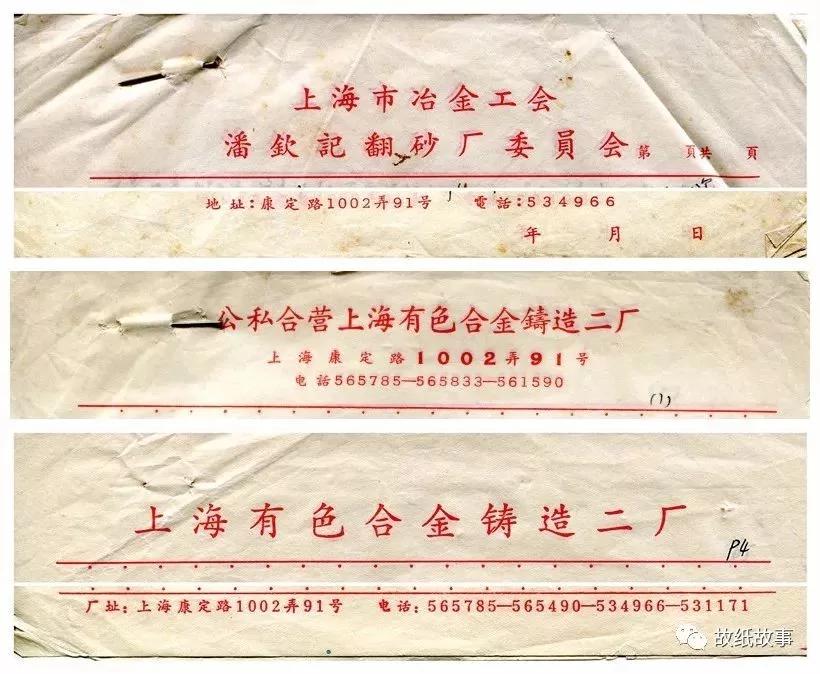 上海市冶金工会
潘欽記翻砂厂委員会第 頁共 頁
地址:康定路1002弄91号 電話:534966
年 月 日
公私合营上海有色合金鑄造二厂
上海康定路1002弄91号
电話565785—565833—561590
(1)
上海有色合金铸造二厂
P4
厂址:上海康定路1002弄91号 电话:565785—565490—534966—531171
故纸故事